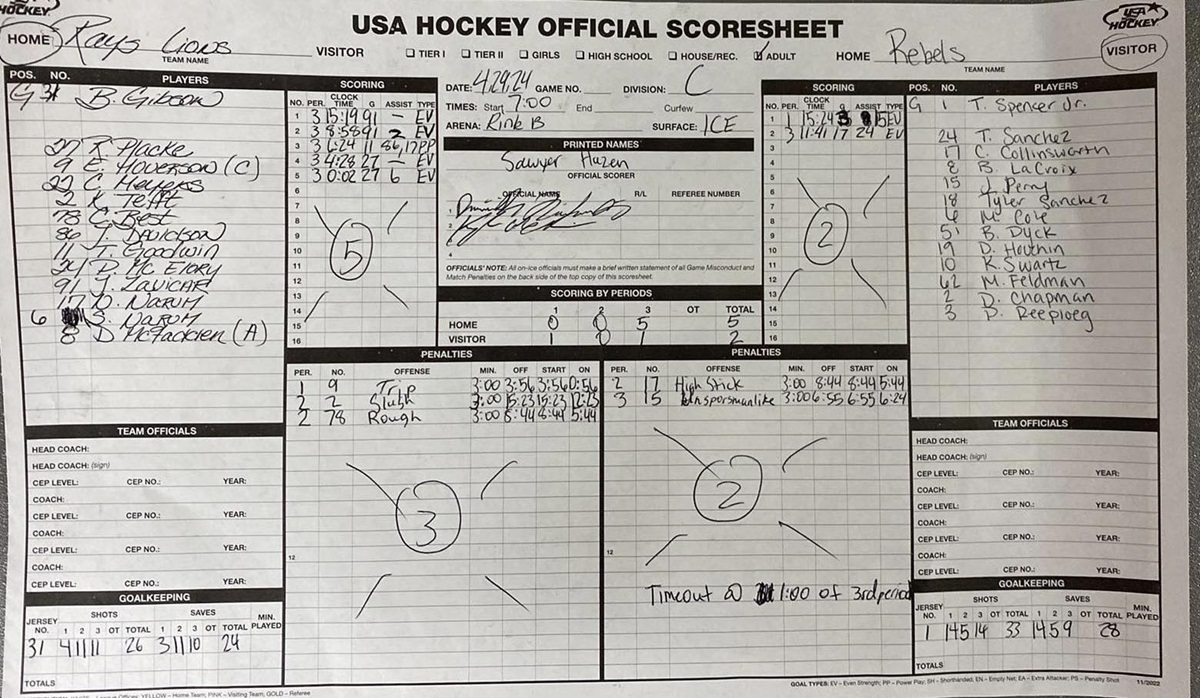 USA HOCKEY OFFICIAL SCORESHEET
HOCKEY
USA HOCKEY
HOME Rays Lions VISITOR
TEAM NAME
☐ TIER I ☐ TIER II ☐ GIRLS ☐ HIGH SCHOOL ☐ HOUSE/REC. ☑ ADULT
HOME Rebels VISITOR
TEAM NAME
POS. NO. PLAYERS
G 31 B. Gibson
27 R. Placke
9 E. Hoverson (C)
22 C. Meyers
2 K. Tefft
78 C. Best
86 J. Davidson
11 T. Goodwin
24 D. McElroy
91 J. Zavicar
17 D. Narum
6 S. Narum
8 D. McFadden (A)
SCORING
NO. PER. CLOCK TIME G ASSIST TYPE
1 3 15:19 91 - EV
2 3 8:58 91 2 EV
3 3 6:24 11 86,17 PP
4 3 4:28 27 - EV
5 3 0:02 27 6 EV
6
7
8
9
10
11
12
13
14
15
16
5
DATE: 4/29/24 GAME NO. DIVISION: C
TIMES: Start 7:00 End Curfew
ARENA: Rink B SURFACE: ICE
PRINTED NAMES
Sawyer Hazen
OFFICIAL SCORER
OFFICIAL NAME R/L REFEREE NUMBER
1
2
4
OFFICIALS' NOTE: All on-ice officials must make a brief written statement of all Game Misconduct and
Match Penalties on the back side of the top copy of this scoresheet.
SCORING BY PERIODS
1 2 3 OT TOTAL
HOME 0 0 5 5
VISITOR 1 0 1 2
SCORING
NO. PER. CLOCK TIME G ASSIST TYPE
1 1 15:24 3 15 EV
2 3 11:41 17 24 EV
3
4
5
6
7
8
9
10
11
12
13
14
15
16
2
POS. NO. PLAYERS
G 1 T. Spencer Jr.
24 T. Sanchez
17 C. Collinsworth
8 B. LaCroix
15 J. Perry
18 Tyler Sanchez
4 M. Cole
51 B. Dyck
19 D. Houchin
10 K. Swartz
62 M. Feldman
2 D. Chapman
3 D. Reeploeg
PENALTIES
PER. NO. OFFENSE MIN. OFF START ON
1 9 Trip 3:00 3:56 3:56 0:56
2 2 Slash 3:00 15:23 15:23 12:23
2 78 Rough 3:00 8:44 8:44 5:44
12
3
PENALTIES
PER. NO. OFFENSE MIN. OFF START ON
2 17 High Stick 3:00 8:44 8:44 5:44
3 15 Unsporsmanlike 3:00 6:55 6:55 6:24
12
2
Timeout @ 1:00 of 3rd period
TEAM OFFICIALS
HEAD COACH:
HEAD COACH: (sign)
CEP LEVEL: CEP NO.: YEAR:
COACH:
CEP LEVEL: CEP NO.: YEAR:
COACH:
CEP LEVEL: CEP NO.: YEAR:
COACH:
CEP LEVEL: CEP NO.: YEAR:
GOALKEEPING
SHOTS SAVES
JERSEY NO. 1 2 3 OT TOTAL 1 2 3 OT TOTAL MIN. PLAYED
31 4 11 11 26 3 11 10 24
TOTALS
TEAM OFFICIALS
HEAD COACH:
HEAD COACH: (sign)
CEP LEVEL: CEP NO.: YEAR:
COACH:
CEP LEVEL: CEP NO.: YEAR:
COACH:
CEP LEVEL: CEP NO.: YEAR:
COACH:
CEP LEVEL: CEP NO.: YEAR:
GOALKEEPING
SHOTS SAVES
JERSEY NO. 1 2 3 OT TOTAL 1 2 3 OT TOTAL MIN. PLAYED
1 14 5 14 33 14 5 9 28
TOTALS
YELLOW – Home Team; PINK – Visiting Team; GOLD – Referee
GOAL TYPES: EV – Even Strength; PP – Power Play; SH – Shorthanded; EN – Empty Net; EA – Extra Attacker; PS – Penalty Shot
11/2022